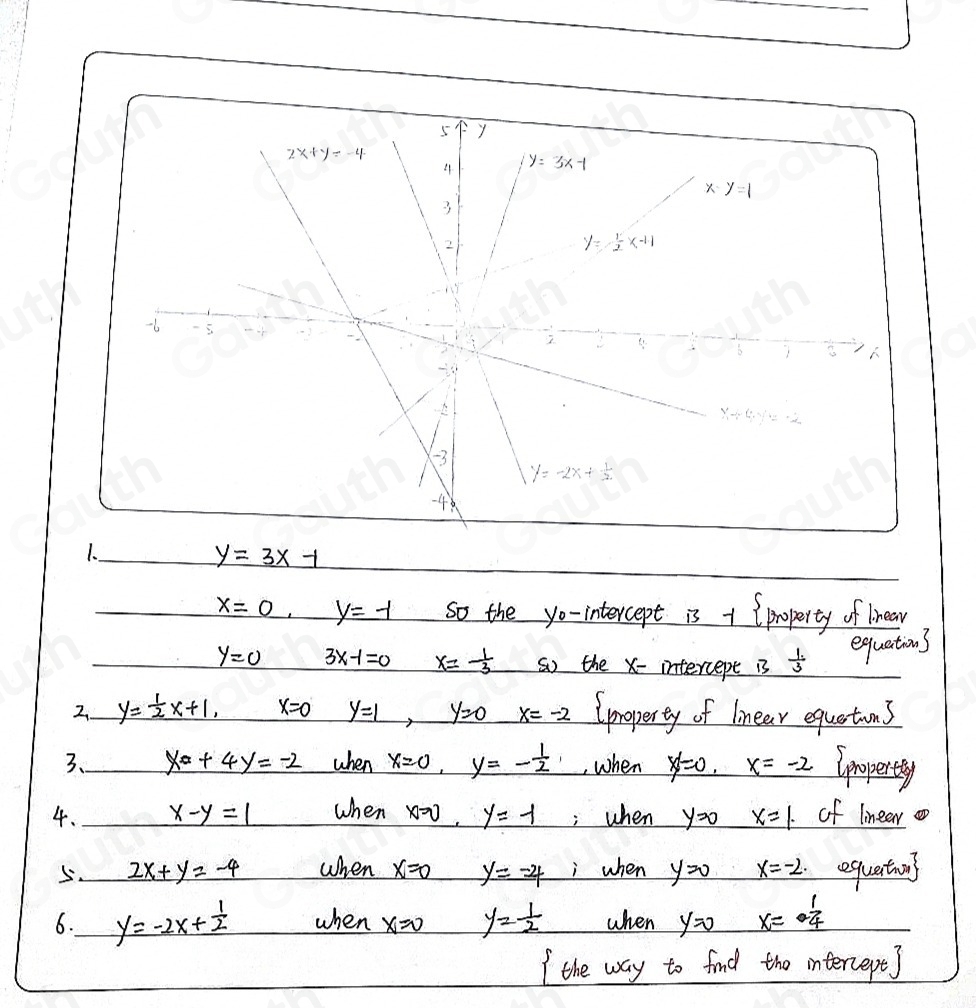 5 y
2x+y=-4
4
y=3x-1
x-y=1
3
2
y=1/2x+1
-6 -5 -2 2 4 6 x
-2
x+4y=-2
-3
y=-2x+1/2
-4
1. y=3x-1
x=0, y=-1 so the yo-intercept is -1 {property of linear equation}
y=0 3x-1=0 x=1/3 so the x-intercept is 1/3
2. y=1/2x+1, x=0 y=1, y=0 x=-2 {property of linear equertun}
3. x+4y=-2 when x=0, y=-1/2, when y=0, x=-2 {property
4. x-y=1 when x=0, y=-1; when y=0 x=1. of linear
5. 2x+y=-4 when x=0 y=-4; when y=0 x=-2. equertion}
6. y=-2x+1/2 when x=0 y=1/2 when y=0 x=1/4
{the way to find the intercept}
Gauth